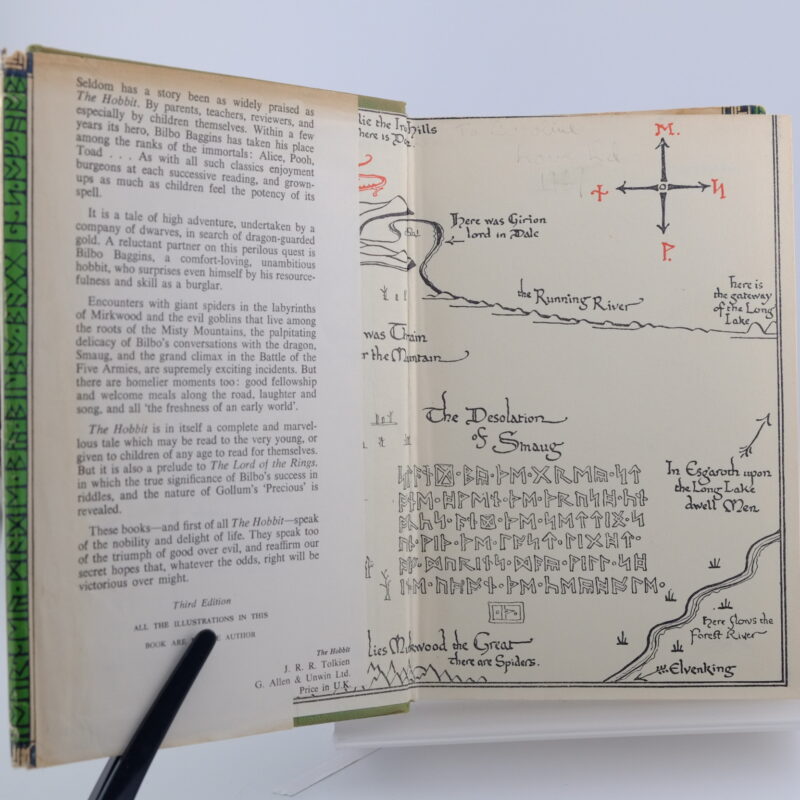 Seldom has a story been as widely praised as
The Hobbit. By parents, teachers, reviewers, and
especially by children themselves. Within a few
years its hero, Bilbo Baggins has taken his place
among the ranks of the immortals: Alice, Pooh,
Toad . . . As with all such classics enjoyment
burgeons at each successive reading, and grown-
ups as much as children feel the potency of its
spell.
It is a tale of high adventure, undertaken by a
company of dwarves, in search of dragon-guarded
gold. A reluctant partner on this perilous quest is
Bilbo Baggins, a comfort-loving, unambitious
hobbit, who surprises even himself by his resource-
fulness and skill as a burglar.
Encounters with giant spiders in the labyrinths
of Mirkwood and the evil goblins that live among
the roots of the Misty Mountains, the palpitating
delicacy of Bilbo's conversations with the dragon,
Smaug, and the grand climax in the Battle of the
Five Armies, are supremely exciting incidents. But
there are homelier moments too: good fellowship
and welcome meals along the road, laughter and
song, and all 'the freshness of an early world'.
The Hobbit is in itself a complete and marvel-
lous tale which may be read to the very young, or
given to children of any age to read for themselves.
But it is also a prelude to The Lord of the Rings,
in which the true significance of Bilbo's success in
riddles, and the nature of Gollum's 'Precious' is
revealed.
These books—and first of all The Hobbit—speak
of the nobility and delight of life. They speak too
of the triumph of good over evil, and reaffirm our
secret hopes that, whatever the odds, right will be
victorious over might.
Third Edition
ALL THE ILLUSTRATIONS IN THIS
BOOK ARE AUTHOR
The Hobbit
J. R. R. Tolkien
G. Allen & Unwin Ltd.
Price in U.K.
lie the Hills
here is
Here was Girion
lord in Dale
the Running River
Here is
the gateway
of the Long
Lake
was Thrain
the Mountain
The Desolation
of Smaug
In Esgaroth upon
the Long Lake
dwell Men
Here flows the
Forest River
Elvenking
lies Mirkwood the Great
there are Spiders.